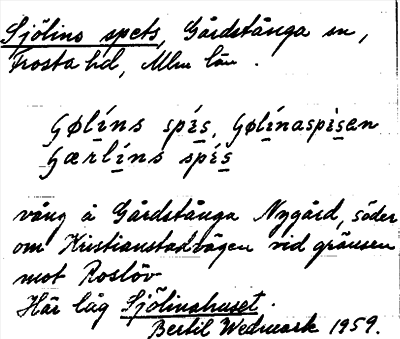 Sjölins spets, Gårdstånga sn,
Frosta hd, Mlm län.
Gøli̱ns spi̱s, Gøli̱naspi̱sen
Gærli̱ns spi̱s
vång å Gårdstånga Nygård, söder
om Kristianstadvägen vid gränsen
mot Roslöv
Här låg Sjölinahuset.
Bertil Wedmark 1959.